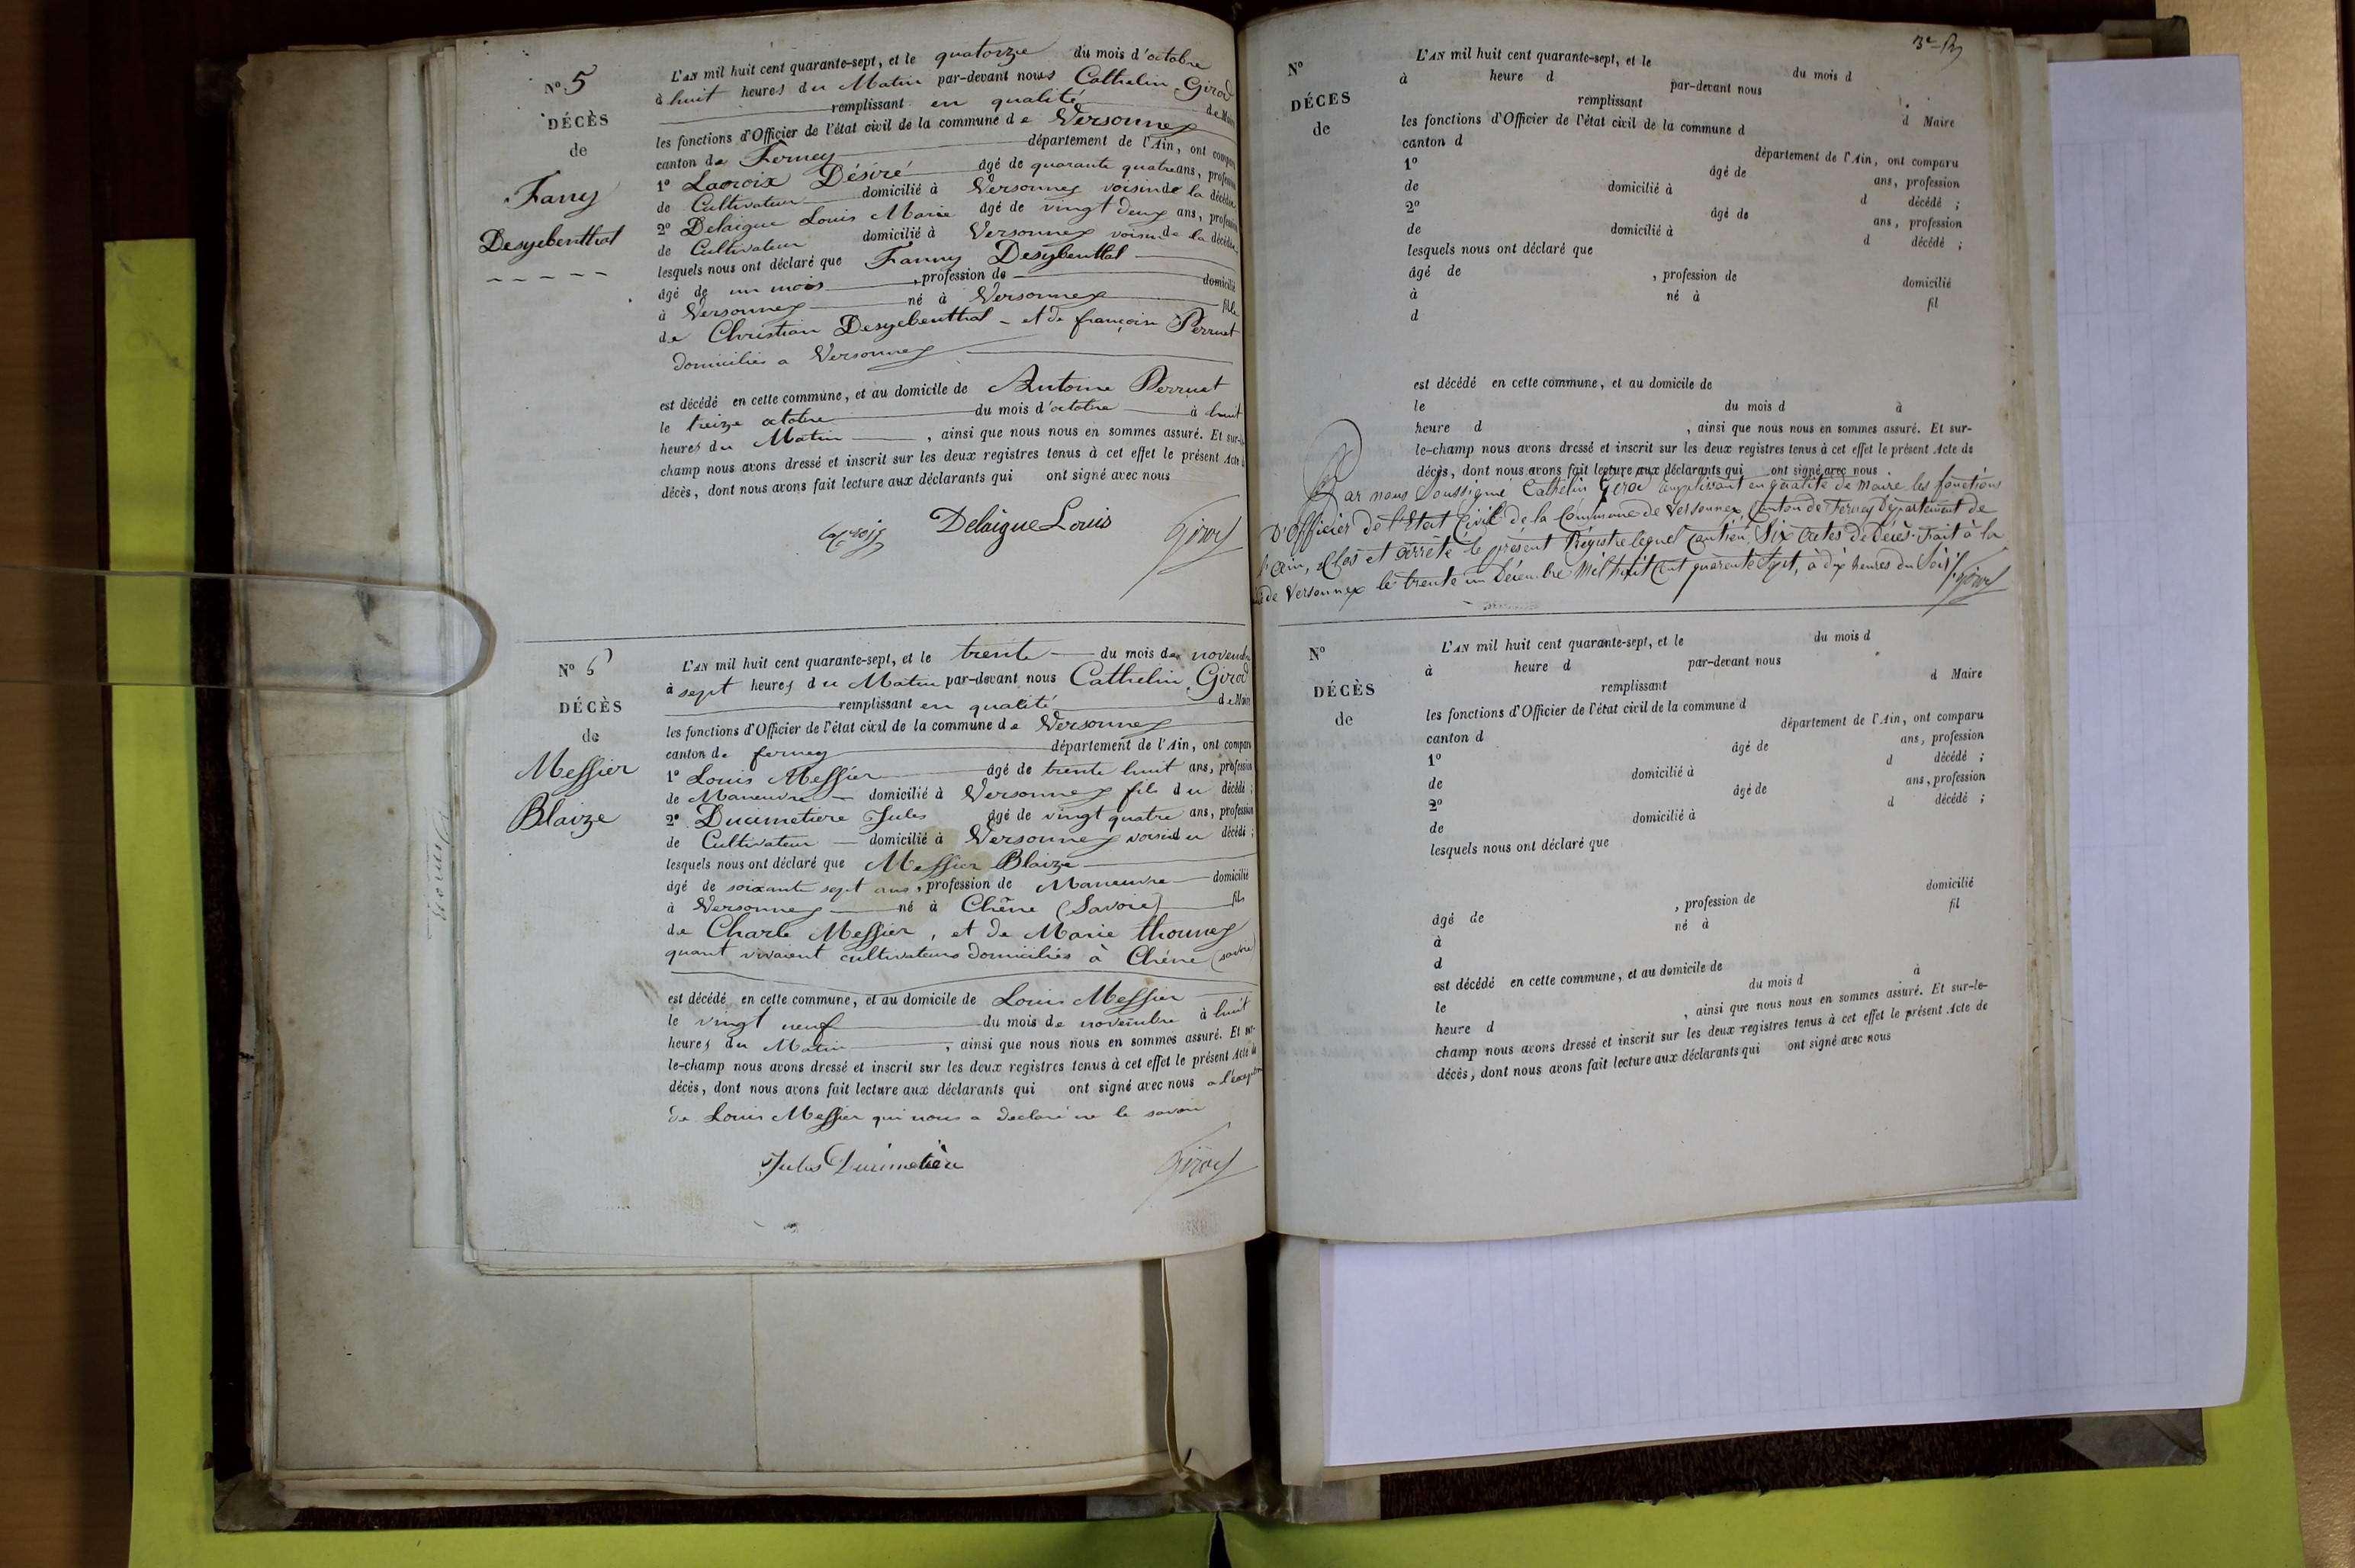 N° 5
DÉCÈS
de
Fany
Desyebenthal
L'AN mil huit cent quarante-sept, et le quatorze du mois d'octobre
à huit heures du Matin par-devant nous Cathelin Girod
remplissant en qualité de Maire
les fonctions d'Officier de l'état civil de la commune de Versonnex
canton de Ferney département de l'Ain, ont comparu
1° Lacroix Désiré âgé de quarante quatre ans, profession
de Cultivateur domicilié à Versonnex voisin de la décédée
2° Delaigue Louis Marie âgé de vingt deux ans, profession
de Cultivateur domicilié à Versonnex voisin de la décédée
lesquels nous ont déclaré que Fanny Desyebenthal
âgé de un mois , profession de domicilié
à Versonnex né à Versonnex fille
de Christian Desyebenthal - et de françoise Perruet
domiciliés a Versonnex
est décédé en cette commune, et au domicile de Antoine Perruet
le treize octobre du mois d'octobre à huit
heures du Matin , ainsi que nous nous en sommes assuré. Et sur-le-
champ nous avons dressé et inscrit sur les deux registres tenus à cet effet le présent Acte de
décès, dont nous avons fait lecture aux déclarants qui ont signé avec nous
Lacroix Delaigue Louis Girod
N° 6
DÉCÈS
de
Messier
Blaize
L'AN mil huit cent quarante-sept, et le trente du mois de novembre
à sept heures du Matin par-devant nous Cathelin Girod
remplissant en qualité de Maire
les fonctions d'Officier de l'état civil de la commune de Versonnex
canton de ferney département de l'Ain, ont comparu
1° Louis Messier âgé de trente huit ans, profession
de Maneuvre domicilié à Versonnex fils du décédé ;
2° Ducimetiere Jules âgé de vingt quatre ans, profession
de Cultivateur domicilié à Versonnex voisin du décédé ;
lesquels nous ont déclaré que Messier Blaize
âgé de soixante sept ans, profession de Maneuvre domicilié
à Versonnex né à Chêne (Savoie) fils
de Charle Messier, et de Marie thouney
quant vivaient cultivateurs domiciliés à Chêne (savoie)
est décédé en cette commune, et au domicile de Louis Messier
le vingt neuf du mois de novembre à huit
heures du Matin , ainsi que nous nous en sommes assuré. Et sur-
le-champ nous avons dressé et inscrit sur les deux registres tenus à cet effet le présent Acte de
décès, dont nous avons fait lecture aux déclarants qui ont signé avec nous a l'exception
de Louis Messier qui nous a declaré ne le savoir
Jules Ducimetière Girod
N°
DÉCÈS
de
L'AN mil huit cent quarante-sept, et le du mois d
à heure d par-devant nous
remplissant d Maire
les fonctions d'Officier de l'état civil de la commune d
canton d département de l'Ain, ont comparu
1° âgé de ans, profession
de domicilié à d décédé ;
2° âgé de ans, profession
de domicilié à d décédé ;
lesquels nous ont déclaré que
âgé de , profession de domicilié
à né à fil
d
est décédé en cette commune, et au domicile de
le du mois d à
heure d , ainsi que nous nous en sommes assuré. Et sur-
le-champ nous avons dressé et inscrit sur les deux registres tenus à cet effet le présent Acte de
décès, dont nous avons fait lecture aux déclarants qui ont signé avec nous
Par nous Soussigné Cathelin Girod remplissant en qualité de maire les fonctions
D'officier de l'Etat Civil de la Commune de Versonnex, Canton de Ferney Département de
l'Ain, Clos et arrêté le présent Régistre lequel contien Six actes de Décès. Fait à la
de Versonnex le trente un Décembre Mil huit Cent quarante Sept, à dix heures du Soir. Girod
N°
DÉCÈS
de
L'AN mil huit cent quarante-sept, et le du mois d
à heure d par-devant nous
remplissant d Maire
les fonctions d'Officier de l'état civil de la commune d
canton d département de l'Ain, ont comparu
1° âgé de ans, profession
de domicilié à d décédé ;
2° âgé de ans, profession
de domicilié à d décédé ;
lesquels nous ont déclaré que
âgé de , profession de domicilié
à né à fil
d
est décédé en cette commune, et au domicile de
le du mois d à
heure d , ainsi que nous nous en sommes assuré. Et sur-le-
champ nous avons dressé et inscrit sur les deux registres tenus à cet effet le présent Acte de
décès, dont nous avons fait lecture aux déclarants qui ont signé avec nous